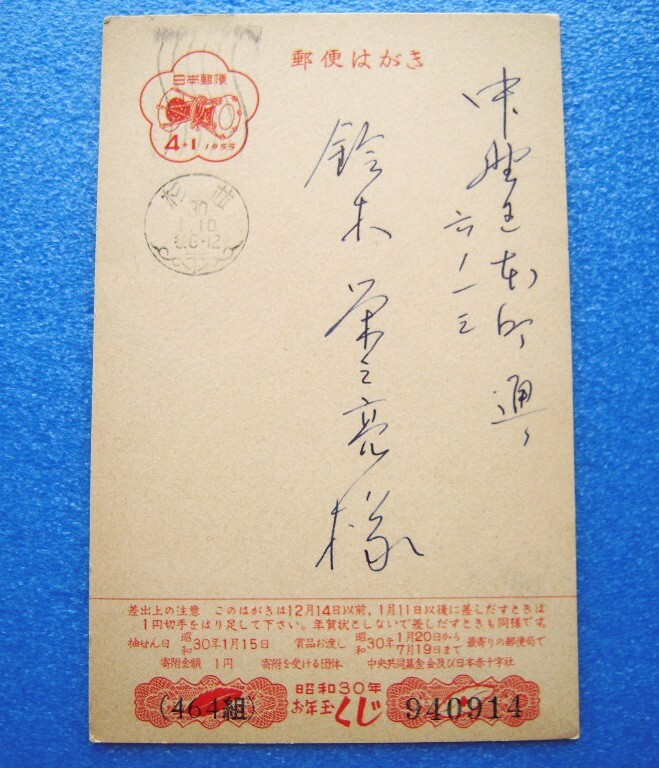 郵便はがき
日本郵便
4+1 1955
杉並
30
1.10
后8-12
中野区本町通り
六ノ一三
鈴木栄之亮様
差出上の注意 このはがきは12月14日以前、1月11日以後に差しだすときは
1円切手をはり足して下さい。年賀状としないで差しだすときも同様です。
抽せん日 昭和30年1月15日 賞品お渡し 昭和30年1月20日から7月19日まで 最寄りの郵便局で
寄附金額 1円 寄附を受ける団体 中央共同募金会及び日本赤十字社
(464組)
昭和30年
お年玉くじ
940914